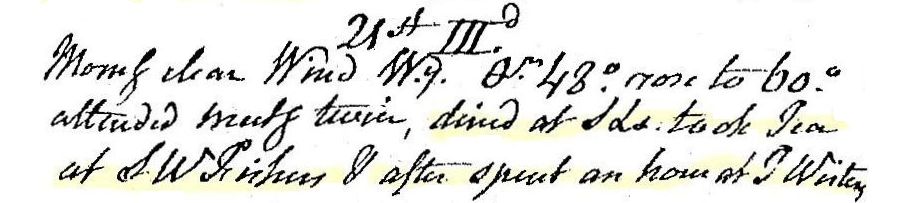 21st III.d
Morng clear Wind Wy. 48° rose to 60°
attended meetg twice, dined at S Ls: took Tea
at S W Fishers & after spent an hour at T Wisters